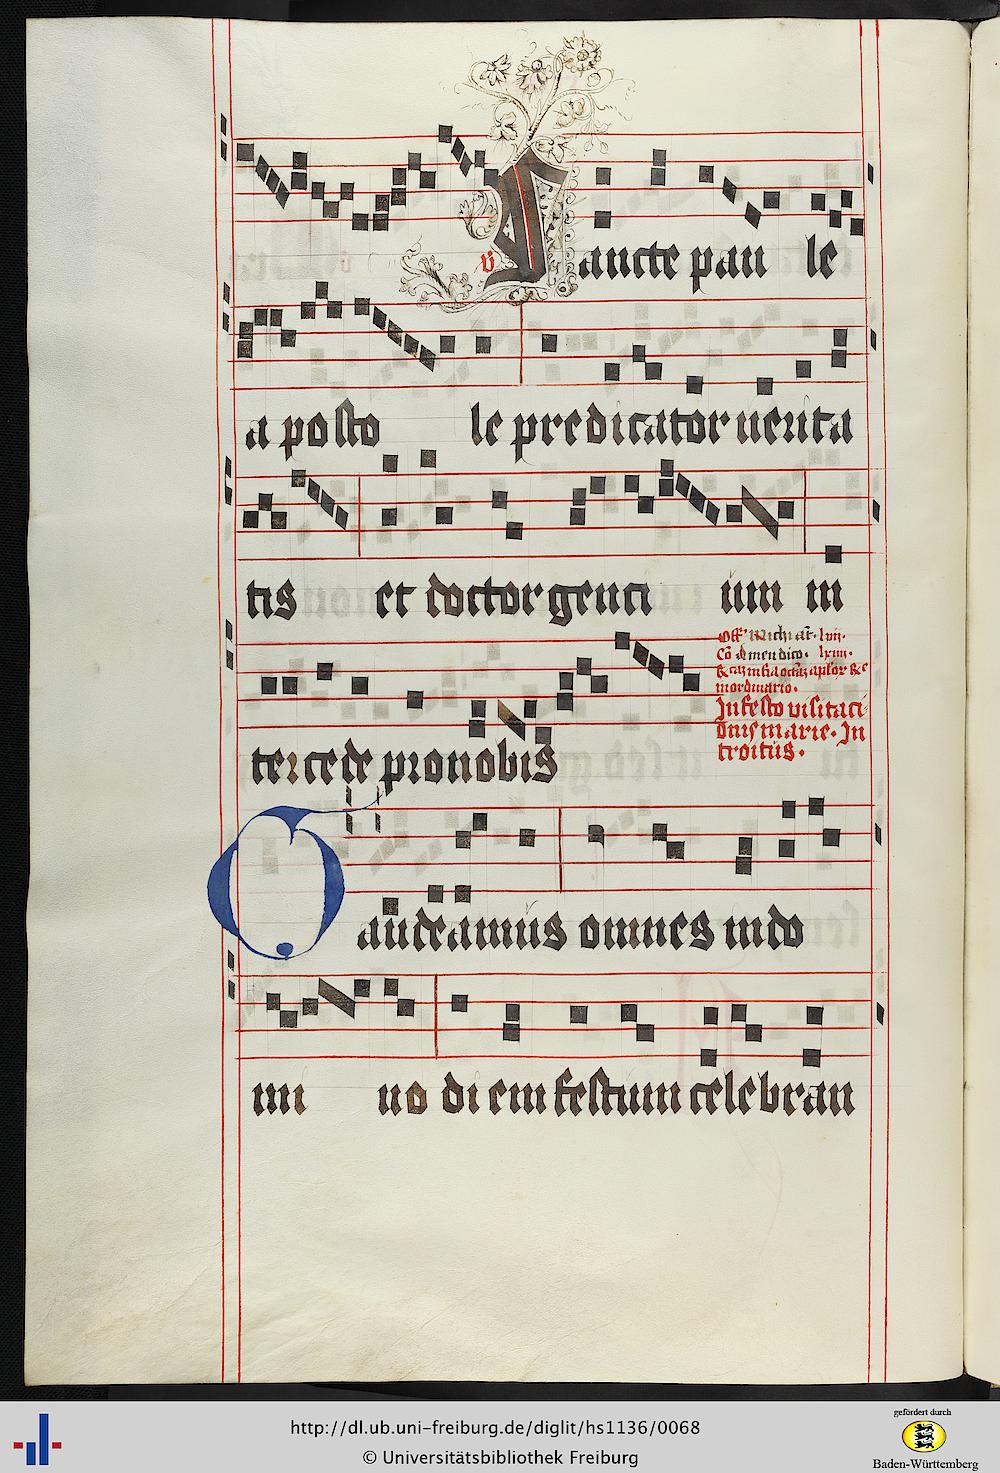 v Sancte pau le
a posto le predicator uerita
tis et doctor genti um in
Off' Michi at. lvii.
Co Amen dico. lxiii.
mordinario.
In festo visitaci
onis marie. In
troitus.
tercede pro nobis
Gaudeamus omnes in do
mi no di em festum celebran
http://dl.ub.uni-freiburg.de/diglit/hs1136/0068
© Universitätsbibliothek Freiburg
gefördert durch
Baden-Württemberg